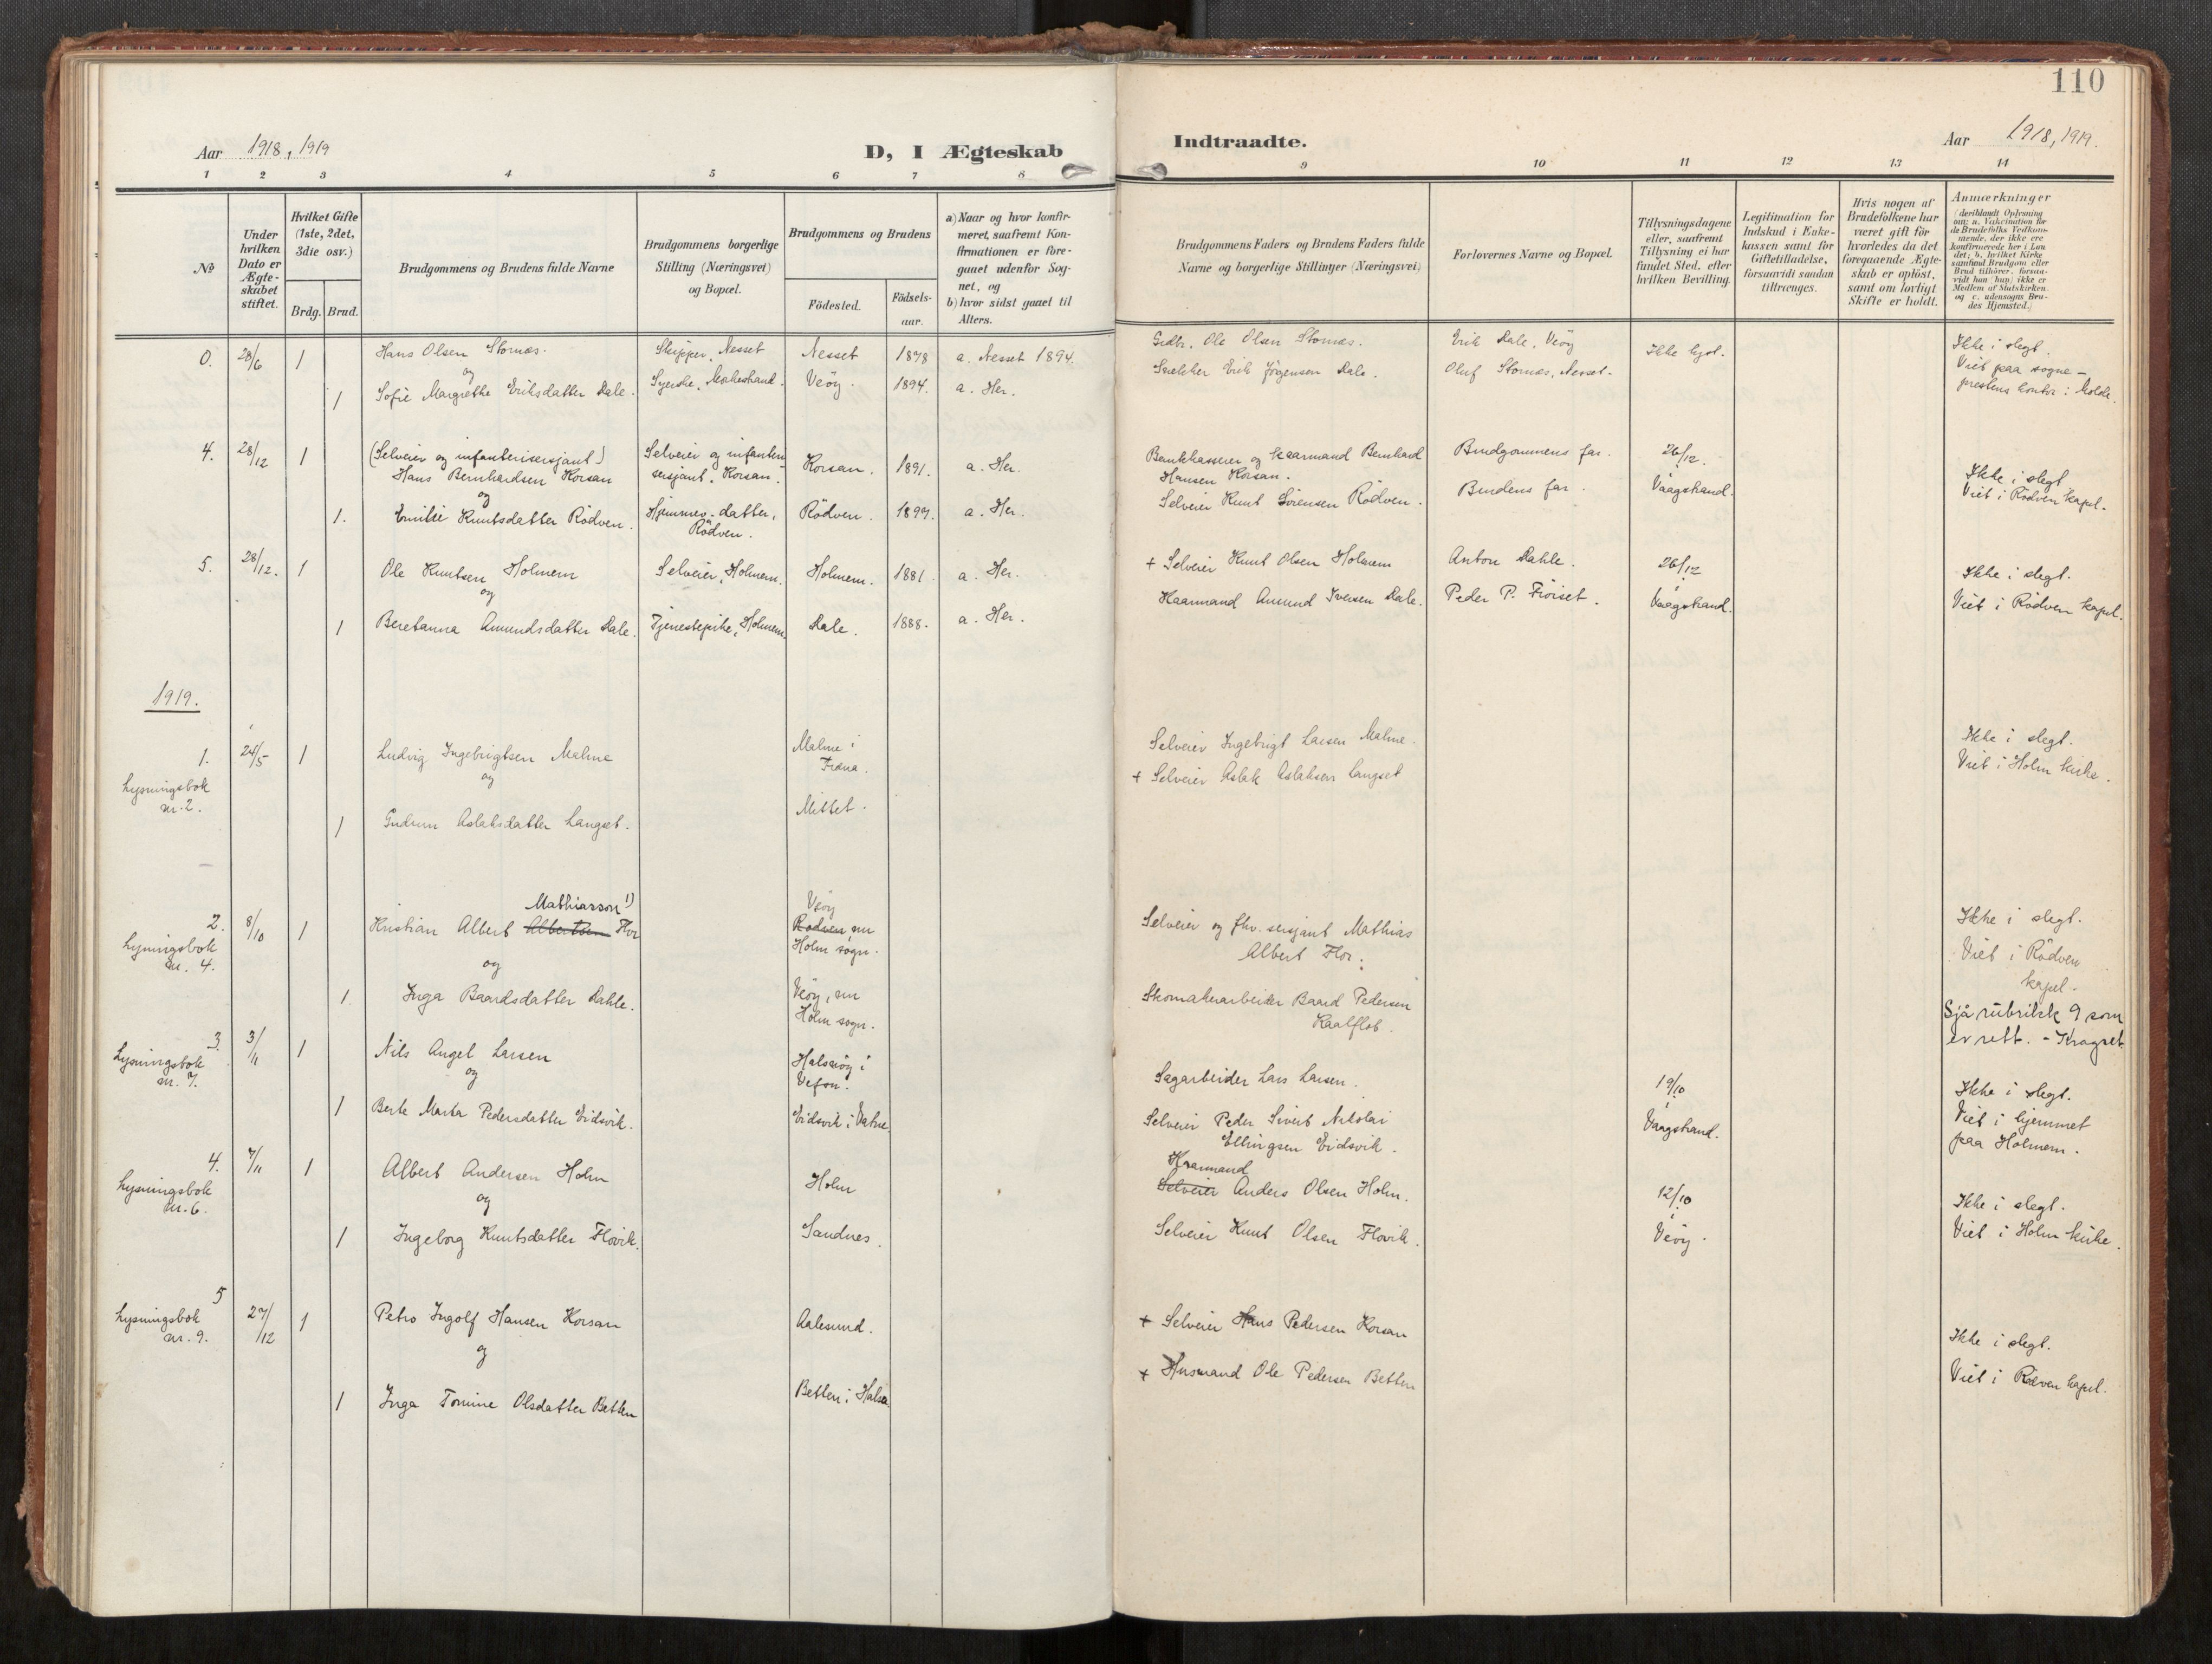 110
Aar 1918, 1919
D, I Ægteskab
Indtraadte.
Aar 1918, 1919.
1 2 3 4 5 6 7 8 9 10 11 12 13 14
No
Under hvilken Dato er Ægteskabet stiftet.
Hvilket Gifte (1ste, 2det, 3die osv.)
Brdg. Brud.
Brudgommens og Brudens fulde Navne
Brudgommens borgerlige Stilling (Næringsvei) og Bopæl.
Brudgommens og Brudens
Födested.
Födsels-aar.
a) Naar og hvor konfirmeret, saafremt Konfirmationen er foregaaet udenfor Sognet, og
b) hvor sidst gaaet til Alters.
Brudgommens Faders og Brudens Faders fulde Navne og borgerlige Stillinger (Næringsvei)
Forlovernes Navne og Bopæl.
Tillysningsdagene eller, saafremt Tillysning ei har fundet Sted, efter hvilken Bevilling.
Legitimation for Indskud i Enkekassen samt for Giftetilladelse, forsaavidt saadan tiltrænges.
Hvis nogen af Brudefolkene har været gift för hvorledes da det foregaaende Ægteskab er oplöst, samt om lovligt Skifte er holdt.
Anmærkninger
(deriblandt Oplysning om: a. Vakcination for de Brudefolks Vedkommende, der ikke ere konfirmerede her i Landet; b. hvilket Kirkesamfund Brudgom eller Brud tilhörer, forsaavidt han (hun) ikke er Medlem af Statskirken og c. udensogns Brudes Hjemsted.)
0. 28/6 1 Hans Olsen Stornæs. Skipper, Nesset Nesset 1878 a. Nesset 1894. Grdbr. Ole Olsen Stornæs. Erik Dale, Veöy Ikke lyst. Ikke i slegt.
og
1 Sofie Margrethe Eriksdatter Dale. Syerske, Veöy. 1894. a. Her. Snekker Erik Jörgensen Dale. Oluf Stornæs, Nesset. Viet paa sogneprestens kontor i Molde.
4. 28/12 1 (Selveier og infanterisersjant) Selveier og infanterisersjant. Korsan. Korsan. 1891. a. Her. Bankkasserer og kaarmand Bernhard Brudgommens far. 26/12. Ikke i slegt
Hans Bernhardsen Korsan Hansen Korsan. i
og
1. Emilie Knutsdatter Rödven. Hjemmev. datter, Rödven. Rödven. 1897. a. Her. Selveier Knut Sörensen Rödven. Brudens far. Vaagstrand. Viet i Rödven kapel.
5. 28/12. 1 Ole Knutsen Holmem Selveier, Holmem. Holmem. 1881. a. Her. + Selveier Knut Olsen Holmem Anton Dahle. 26/12 Ikke i slegt.
og i
1 Beretanna Amundsdatter Dale. Tjenestepike, Holmem Dale. 1888. a. Her. Kaarmand Amund Iversen Dale. Peder P. Fröiset. Vaagstrand. Viet i Rödven kapel.
1919.
1. 24/5 1 Ludvig Ingebrigtsen Malme Malme i Fræna. Selveier Ingebrigt Larsen Malme. Ikke i slegt.
Lysningsbok nr. 2. og
1 Gudrun Aslaksdatter Langset. Mittet. + Selveier Aslak Aslaksen Langset Viet i Holm kirke.
2. 8/10 1 Kristian Albert Albertsen Mathiasson 1) Flor Veöy Rödven, nu Holm sogn. Selveier og fhv. sersjant Mathias Albert Flor. Ikke i slegt.
Lysningsbok nr. 4. og
1. Inga Baardsdatter Dahle. Veöy, nu Holm sogn. Skomakerarbeider Baard Pedersen Kaalflot. Viet i Rödven kapel.
Sjå rubrikk 9 som er rett. - Kragset
3. 3/11 1 Nils Angel Larsen Halsöy i Vefsn. Sagarbeider Lars Larsen. 19/10 Ikke i slegt.
Lysningsbok nr. 7. og i
1 Berte Marta Pedersdatter Eidsvik. Eidsvik i Vatne. Selveier Peder Sivert Nikolai Ellingsen Eidsvik. Vaagstrand. Viet i hjemmet paa Holmem.
4. 7/11 1 Albert Andersen Holm Holm Selveier Kaarmand Anders Olsen Holm. 12/10 Ikke i slegt.
Lysningsbok nr. 6. og i
1 Ingeborg Knutsdatter Flovik. Sandnes. Selveier Knut Olsen Flovik. Veöy. Viet i Holm kirke.
5 27/12 1 Petro Ingolf Hansen Korsan Aalesund. + Selveier Hans Pedersen Korsan Ikke i slegt.
Lysningsbok nr. 9. og
1 Inga Tomine Olsdatter Betten Betten i Halsa. + Husmand Ole Pedersen Betten Viet i Rödven kapel.